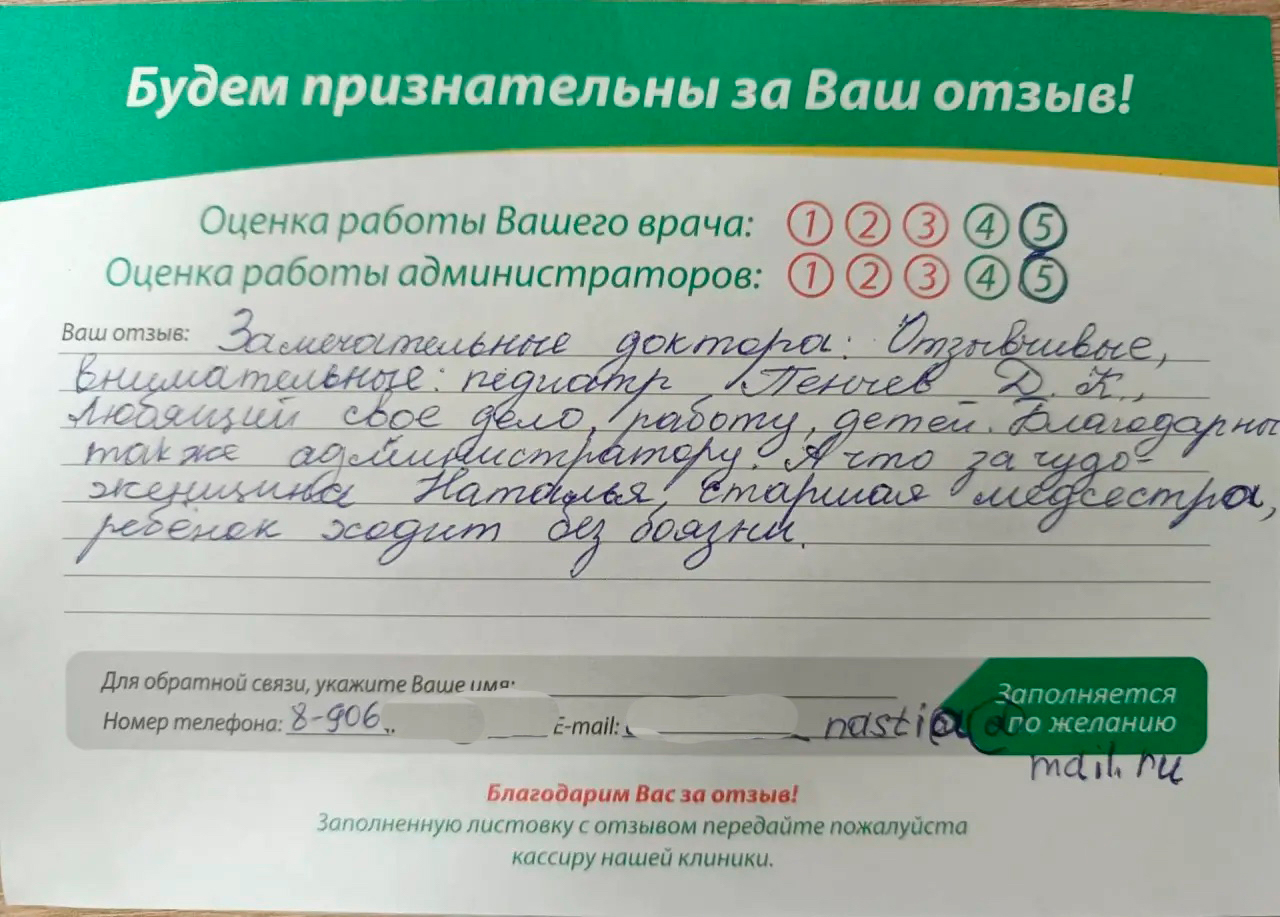 Будем признательны за Ваш отзыв!
Оценка работы Вашего врача: 1 2 3 4 5
Оценка работы администраторов: 1 2 3 4 5
Ваш отзыв: Замечательные доктора: Отзывчивые,
внимательные: педиатр Пенчев Д. К.,
любящий свое дело, работу, детей. Благодарны
также администратору. А что за чудо-
женщина Наталья, старшая медсестра,
ребёнок ходит без боязни.
Для обратной связи, укажите Ваше имя:
Номер телефона: 8-906 E-mail: nastia@
mail.ru
Заполняется
по желанию
Благодарим Вас за отзыв!
Заполненную листовку с отзывом передайте пожалуйста
кассиру нашей клиники.